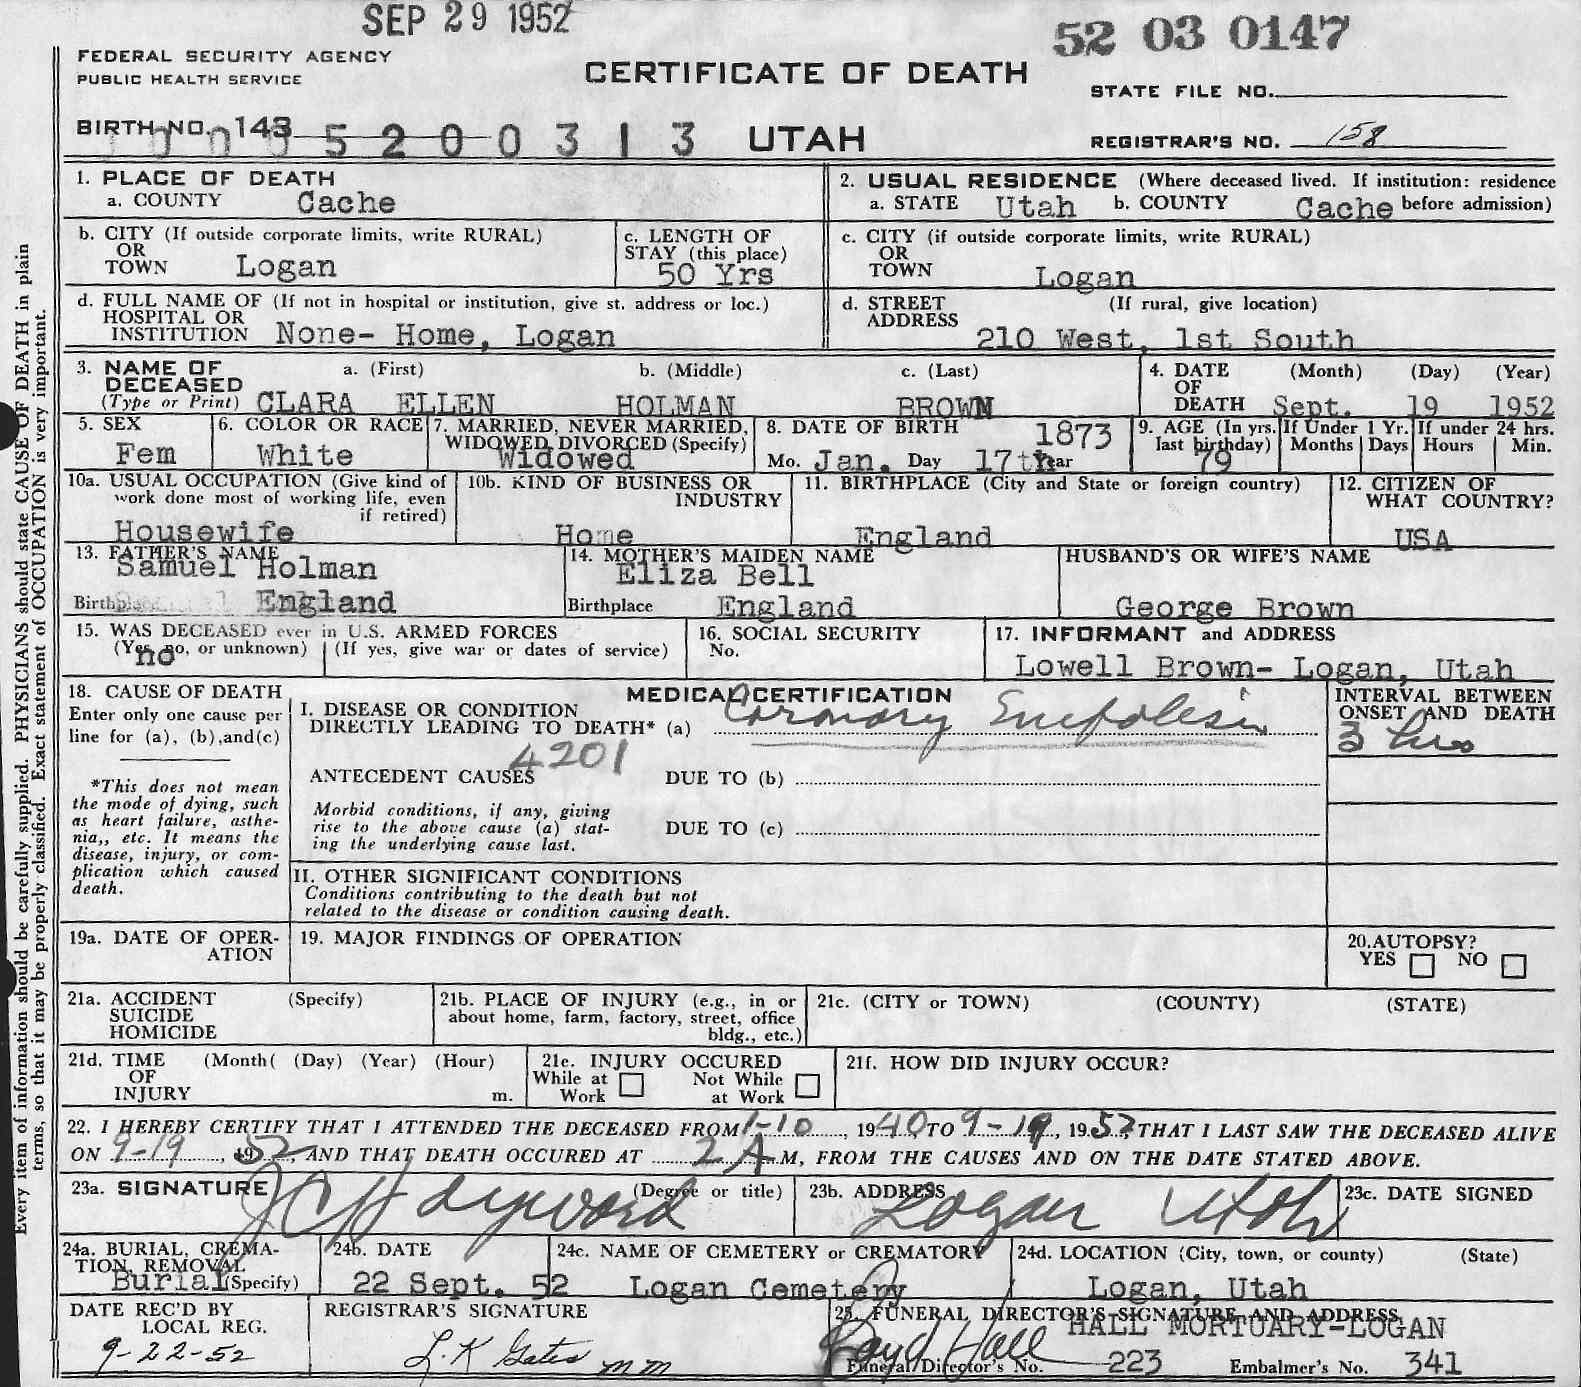 SEP 29 1952
52 03 0147
FEDERAL SECURITY AGENCY
PUBLIC HEALTH SERVICE
CERTIFICATE OF DEATH
STATE FILE NO.
BIRTH NO. 143
5 2 0 0 3 1 3
UTAH
REGISTRAR'S NO. 158
1. PLACE OF DEATH
a. COUNTY Cache
2. USUAL RESIDENCE (Where deceased lived. If institution: residence
a. STATE Utah b. COUNTY Cache before admission)
b. CITY (If outside corporate limits, write RURAL)
OR
TOWN Logan
c. LENGTH OF
STAY (this place)
50 Yrs
c. CITY (if outside corporate limits, write RURAL)
OR
TOWN Logan
d. FULL NAME OF (If not in hospital or institution, give st. address or loc.)
HOSPITAL OR
INSTITUTION None- Home, Logan
d. STREET (If rural, give location)
ADDRESS
210 West, 1st South
3. NAME OF a. (First) b. (Middle) c. (Last)
DECEASED
(Type or Print) CLARA ELLEN HOLMAN BROWN
4. DATE (Month) (Day) (Year)
OF
DEATH Sept. 19 1952
5. SEX
Fem
6. COLOR OR RACE
White
7. MARRIED, NEVER MARRIED,
WIDOWED, DIVORCED (Specify)
Widowed
8. DATE OF BIRTH 1873
Mo. Jan. Day 17th Year
9. AGE (In yrs.
last birthday)
79
If Under 1 Yr.
Months Days
If under 24 hrs.
Hours Min.
10a. USUAL OCCUPATION (Give kind of
work done most of working life, even
if retired)
Housewife
10b. KIND OF BUSINESS OR
INDUSTRY
Home
11. BIRTHPLACE (City and State or foreign country)
England
12. CITIZEN OF
WHAT COUNTRY?
USA
13. FATHER'S NAME
Samuel Holman
Birthplace England
14. MOTHER'S MAIDEN NAME
Eliza Bell
Birthplace England
HUSBAND'S OR WIFE'S NAME
George Brown
15. WAS DECEASED ever in U.S. ARMED FORCES
(Yes, no, or unknown) (If yes, give war or dates of service)
no
16. SOCIAL SECURITY
No.
17. INFORMANT and ADDRESS
Lowell Brown- Logan, Utah
18. CAUSE OF DEATH
Enter only one cause per
line for (a), (b),and(c)
*This does not mean
the mode of dying, such
as heart failure, asthe-
nia,, etc. It means the
disease, injury, or com-
plication which caused
death.
MEDICAL CERTIFICATION
I. DISEASE OR CONDITION
DIRECTLY LEADING TO DEATH* (a) Coronary
4201
ANTECEDENT CAUSES DUE TO (b)
Morbid conditions, if any, giving
rise to the above cause (a) stat-
ing the underlying cause last.
DUE TO (c)
II. OTHER SIGNIFICANT CONDITIONS
Conditions contributing to the death but not
related to the disease or condition causing death.
INTERVAL BETWEEN
ONSET AND DEATH
3 hrs
19a. DATE OF OPER-
ATION
19. MAJOR FINDINGS OF OPERATION
20.AUTOPSY?
YES NO
21a. ACCIDENT (Specify)
SUICIDE
HOMICIDE
21b. PLACE OF INJURY (e.g., in or
about home, farm, factory, street, office
bldg., etc.)
21c. (CITY or TOWN) (COUNTY) (STATE)
21d. TIME (Month( (Day) (Year) (Hour)
OF
INJURY m.
21e. INJURY OCCURED
While at Work Not While at Work
21f. HOW DID INJURY OCCUR?
22. I HEREBY CERTIFY THAT I ATTENDED THE DECEASED FROM 1-10, 1940, TO 9-19, 1952, THAT I LAST SAW THE DECEASED ALIVE
ON 9-19, 1952, AND THAT DEATH OCCURED AT 2 A M, FROM THE CAUSES AND ON THE DATE STATED ABOVE.
23a. SIGNATURE (Degree or title)
J C Hayward
23b. ADDRESS
Logan Utah
23c. DATE SIGNED
24a. BURIAL, CREMA-
TION, REMOVAL
Burial (Specify)
24b. DATE
22 Sept. 52
24c. NAME OF CEMETERY or CREMATORY
Logan Cemetery
24d. LOCATION (City, town, or county) (State)
Logan, Utah
DATE REC'D BY
LOCAL REG.
9-22-52
REGISTRAR'S SIGNATURE
L.K Gates mm
25. FUNERAL DIRECTOR'S SIGNATURE AND ADDRESS
HALL MORTUARY-LOGAN
Boyd Hall
Funeral Director's No. 223 Embalmer's No. 341
Every item of information should be carefully supplied. PHYSICIANS should state CAUSE OF DEATH in plain
terms, so that it may be properly classified. Exact statement of OCCUPATION is very important.